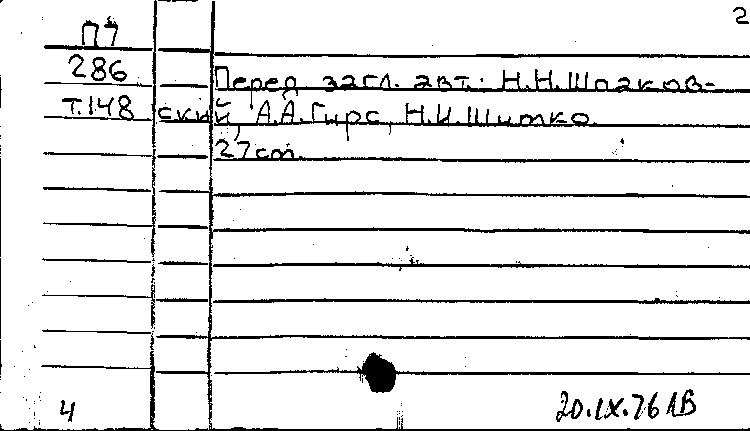 2
П7
286 Перед загл. авт.: Н.Н.Шпаков-
т.148 ский, А.А.Гирс, Н.И.Шитко.
27cm.
4 20.IX.76 ЛВ